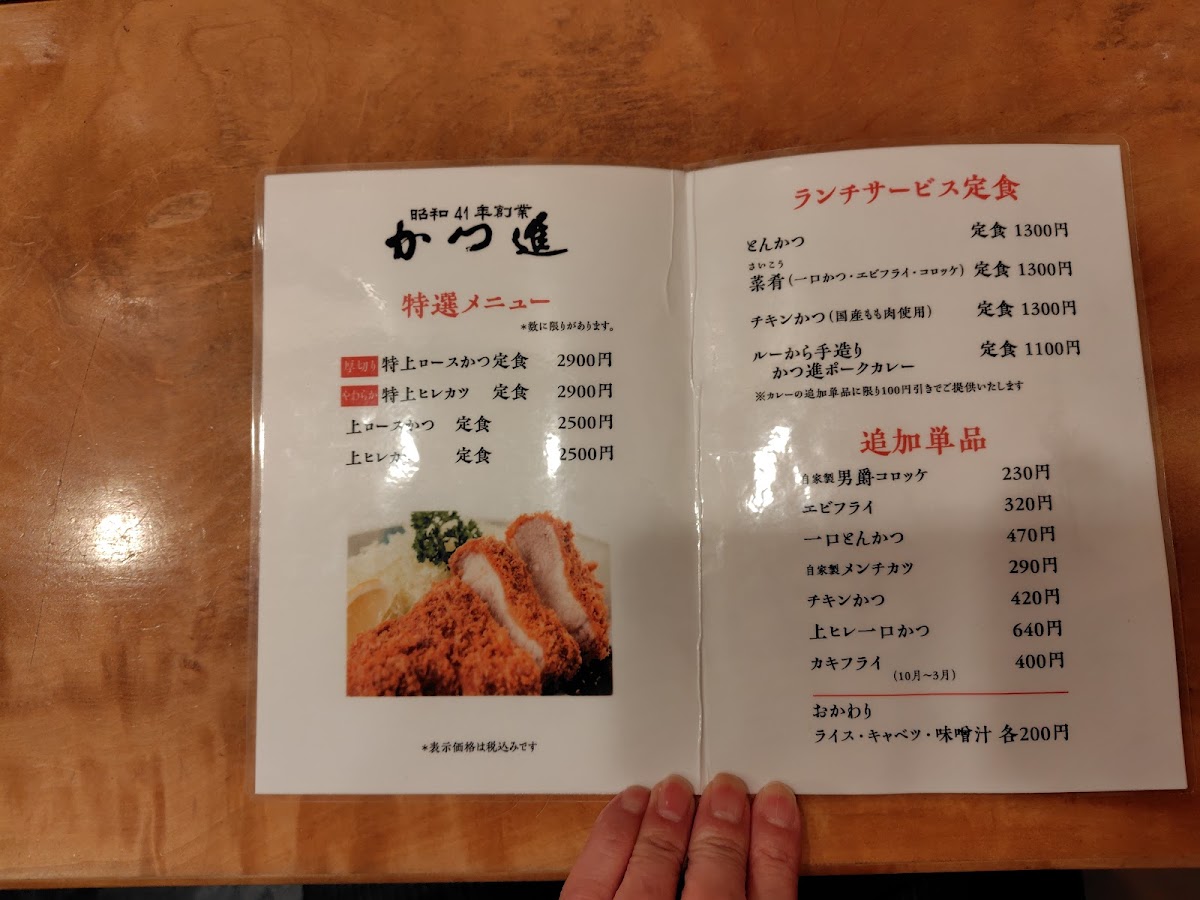 昭和41年創業
かつ進
特選メニュー
*数に限りがあります。
厚切り 特上ロースかつ定食 2900円
やわらか 特上ヒレカツ 定食 2900円
上ロースかつ 定食 2500円
上ヒレか 定食 2500円
*表示価格は税込みです
ランチサービス定食
とんかつ 定食 1300円
さいこう
菜肴(一口かつ・エビフライ・コロッケ) 定食 1300円
チキンかつ(国産もも肉使用) 定食 1300円
ルーから手造り 定食 1100円
かつ進ポークカレー
※カレーの追加単品に限り100円引きでご提供いたします
追加単品
自家製男爵コロッケ 230円
エビフライ 320円
一口とんかつ 470円
自家製メンチカツ 290円
チキンかつ 420円
上ヒレ一口かつ 640円
カキフライ 400円
(10月~3月)
おかわり
ライス・キャベツ・味噌汁 各200円